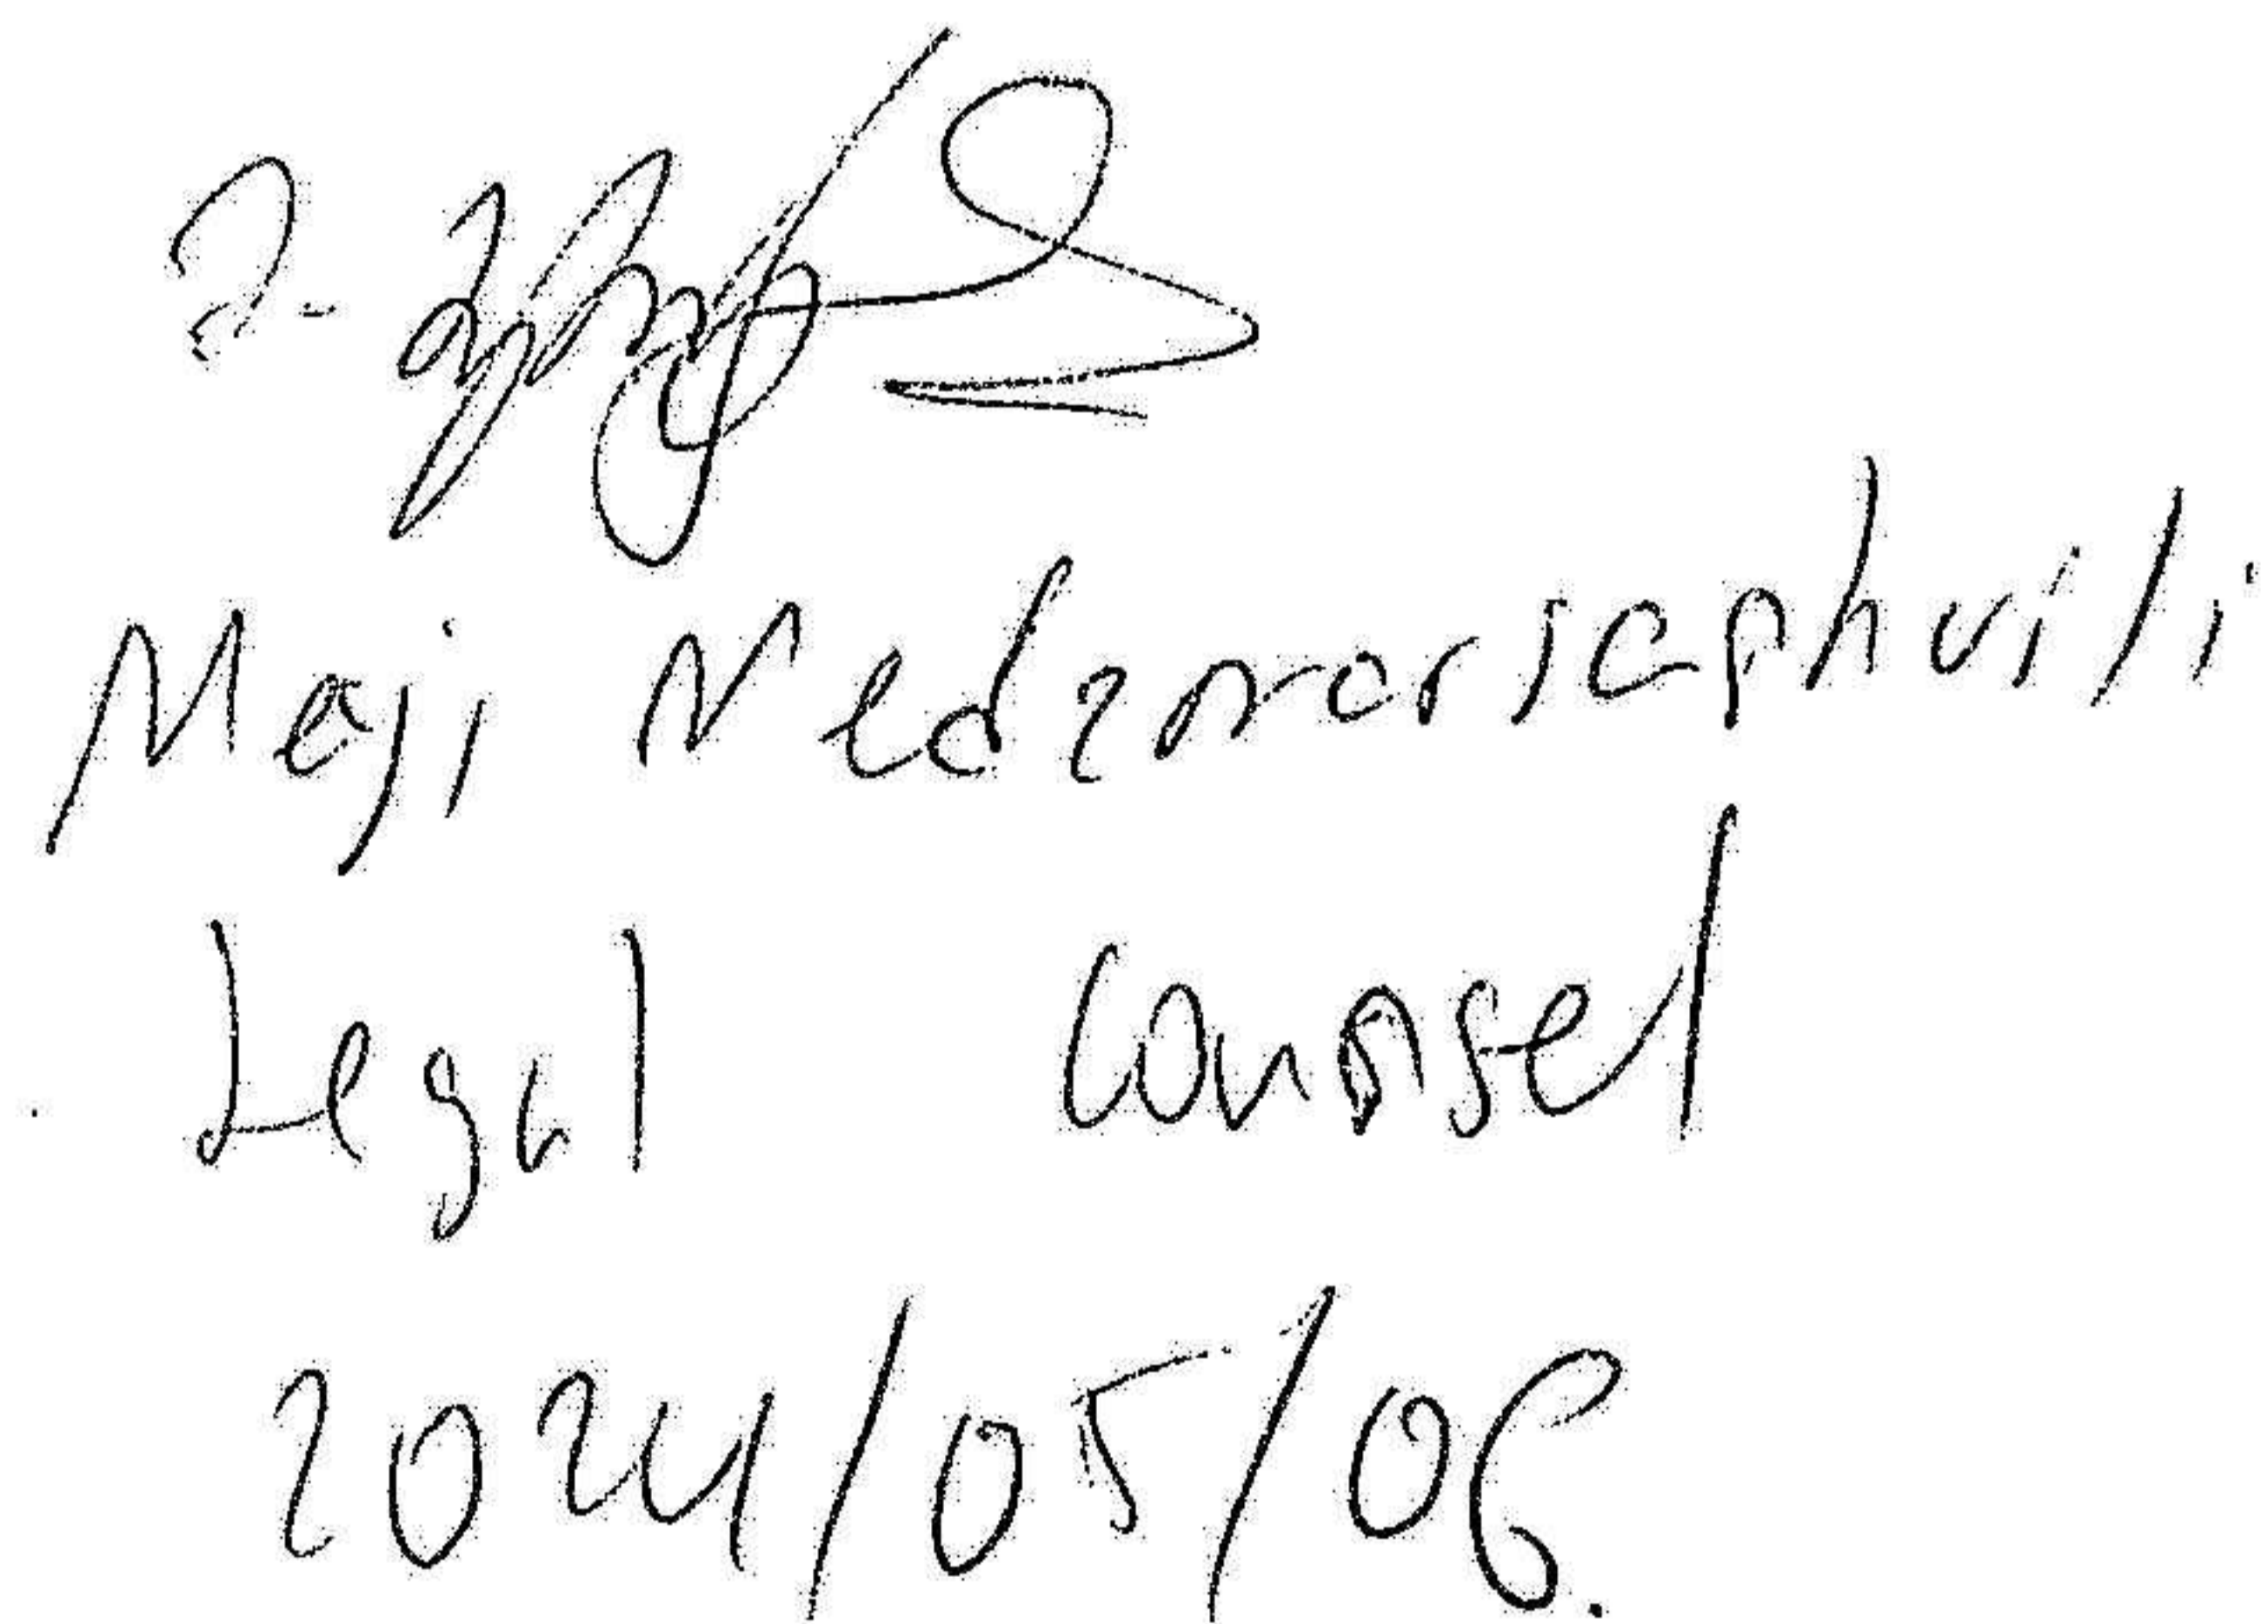 Maji Nedzmariasphvili
Legal Counsel
2024/05/06.